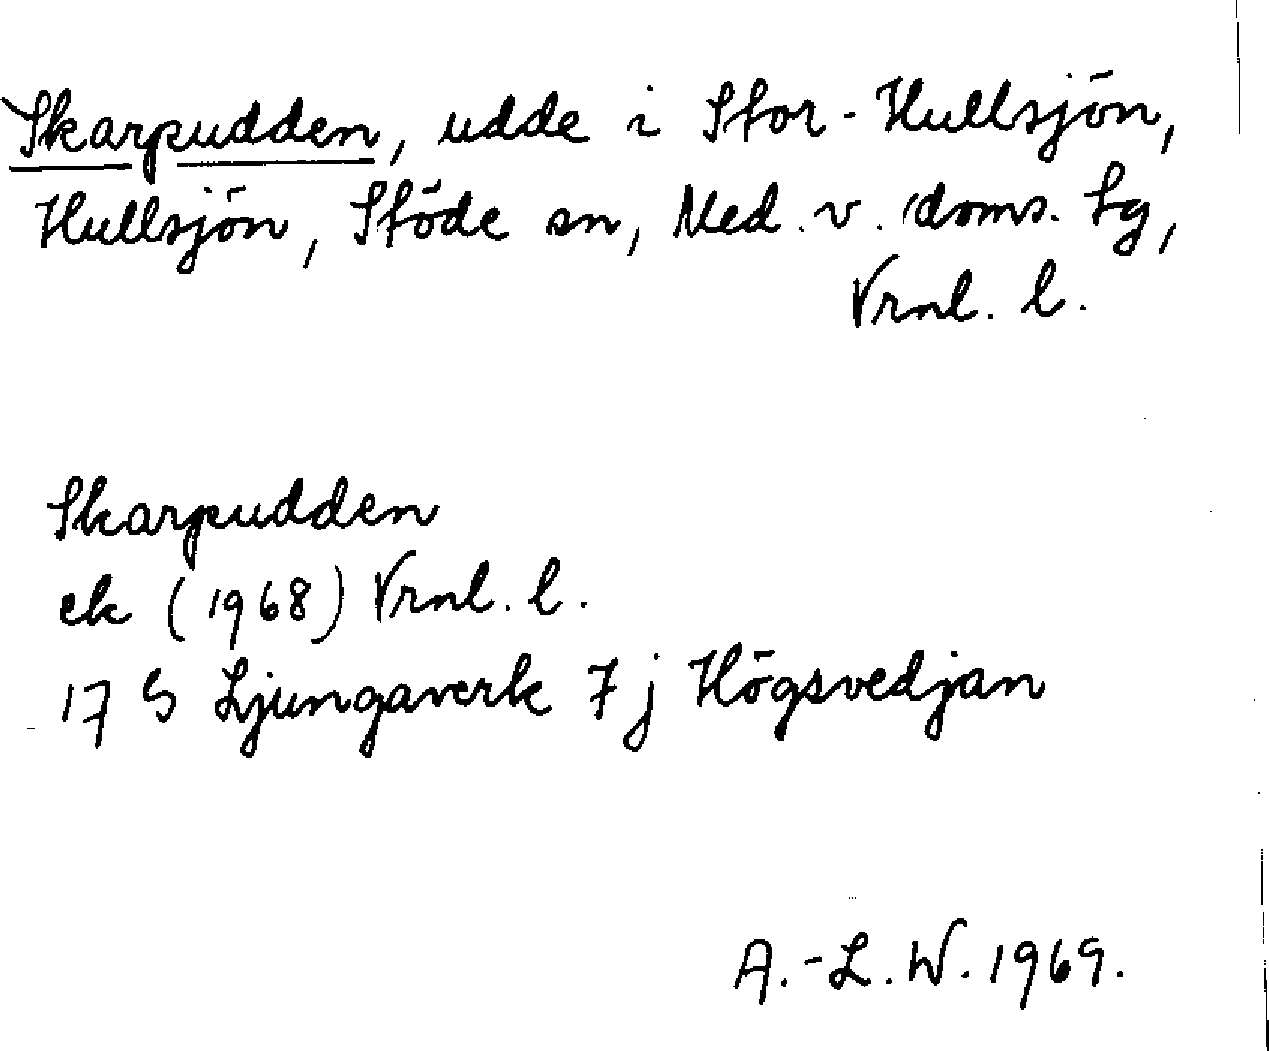 Skarpudden, udde i Stor-Hullsjön,
Hullsjön, Stöde sn, Med. v. doms. tg,
Vrnl. l.
Skarpudden
ek (1968) Vrnl. l.
17 G Ljungaverk 7 j Högsvedjan
A.-L. W. 1969.